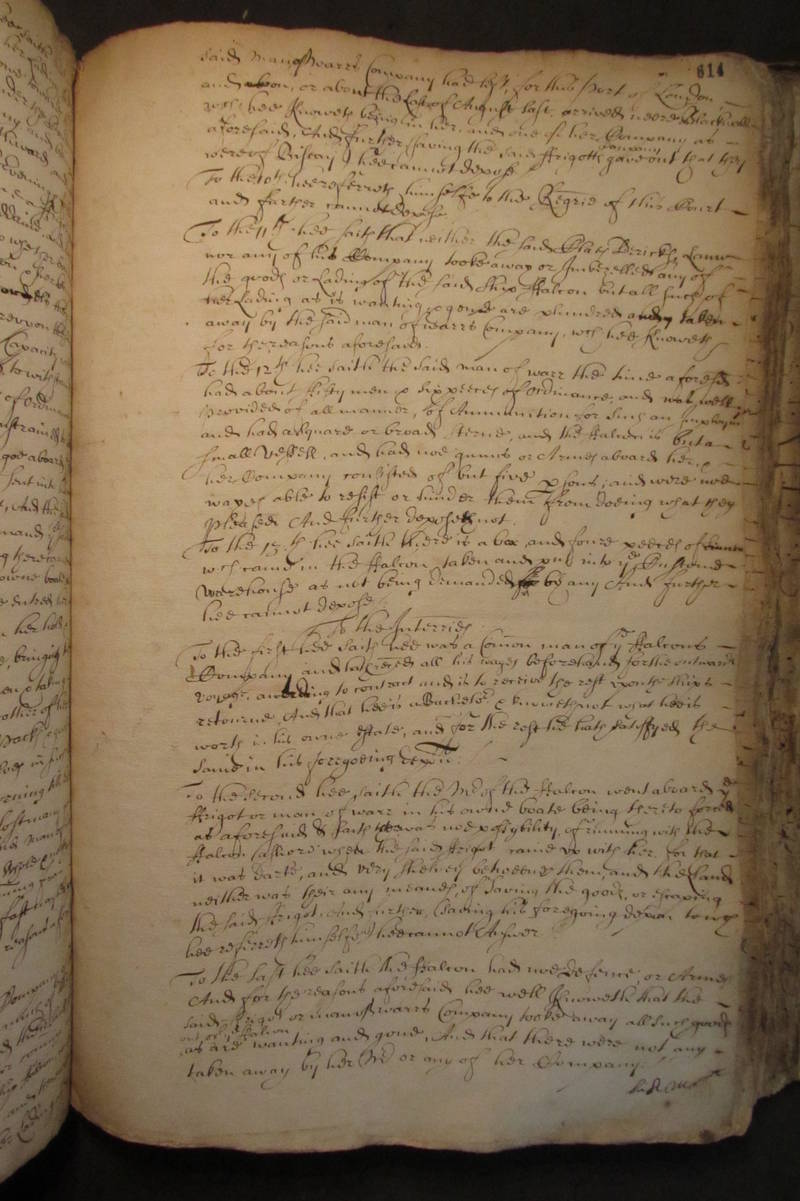 614
said man of warrs Company had left, for this Port of London,
and upon, or about the last of August last, arrived neere Blackwall
wch hee knoweth being in her, and one of her Company as
aforesaid, And further (saving the said ffrigotts Company gave out that they
were of Biscay) hee cannot depose.
To the 10th hee referreth himselfe to the Regrie of this Court
and further cannot depose.
To the 11th hee saith that neither the said Claes Dericks
nor any of his Company tooke away or Imbezelled any of
the goods or Lading of the said ship ffalcon but all such of
her Lading as is wanting & gone are plundered and taken
away by the said man of warrs Company, wch hee knoweth
for the reasons aforesaid.
To the 12th hee saith the said man of warr the time aforesaid
had about fifty men & six peeces of Ordinance, and was well
provided of all manner, of Ammunition for such an
and had a square or broad sterne, and the ffalcon is but a
small vessell, and had noe gunns or Armes aboard her,
her Company consisted of but five psons, and were noe
wayes able to resist or hinder them from doeing what they
pleased And further deposeth not.
To the 13th hee saith there is a box, and foure peeces of
wch came in the ffalcon, taken and put into ye Custome
warehouse as not being demanded by any And further
hee cannot depose.
To the Interries
To the first hee saith hee was a Comon man of ye ffalcons
Company and hath received all his wages beforehand for the outward
voyage, according to contract and is to receive the rest upon the ships
retourne, And that hee is a Bachelor & knoweth not what hee is
worth in his owne estate, and for the rest hee hath satisfyed the
same in his foregoeing depon.
To the second hee saith the Mr of the ffalcon went aboard ye
ffrigot or man of warr in his owne boate being therto forced
as aforesaid & saith there was noe possibility, of running with the
ffalcon ashoare when the said ffrigot came up with her, for that
it was darke, and very shelvey betweene them, and the land
neither was their any meanes of saving the goods, or escaping
the said ffrigot, And further, (saving his foregoing depon to wch
hee referreth himselfe) hee cannot Answer
To the last hee saith the ffalcon had noe defence, or Armes
And for the reasons aforesaid hee well knoweth that the
said ffrigot or man of warrs Company tooke away all such goods
out of ye ffalcon
as are wanting and gone, And that there were not any
taken away by her Mr or any of her Company.